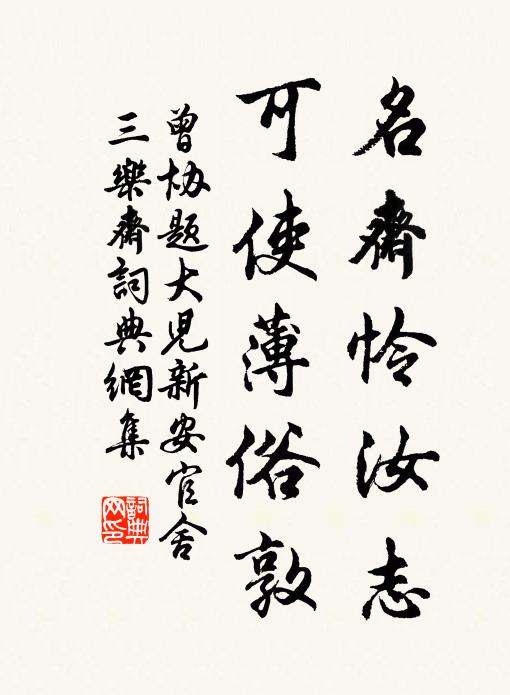 名齋怜汝志
可使薄俗敦
曾協題大児新安官舎
三樂齋詞典網集
詞典网印